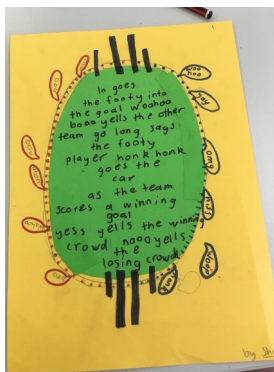 In goes
the footy into
the goal woohoo
booo yells the other
team go long says
the footy
player honk honk
goes the
car
as the team
scores a winning
goal
yess yells the winning
crowd nooo yells
the
losing crowd
woo
hoo
yay
omg
by